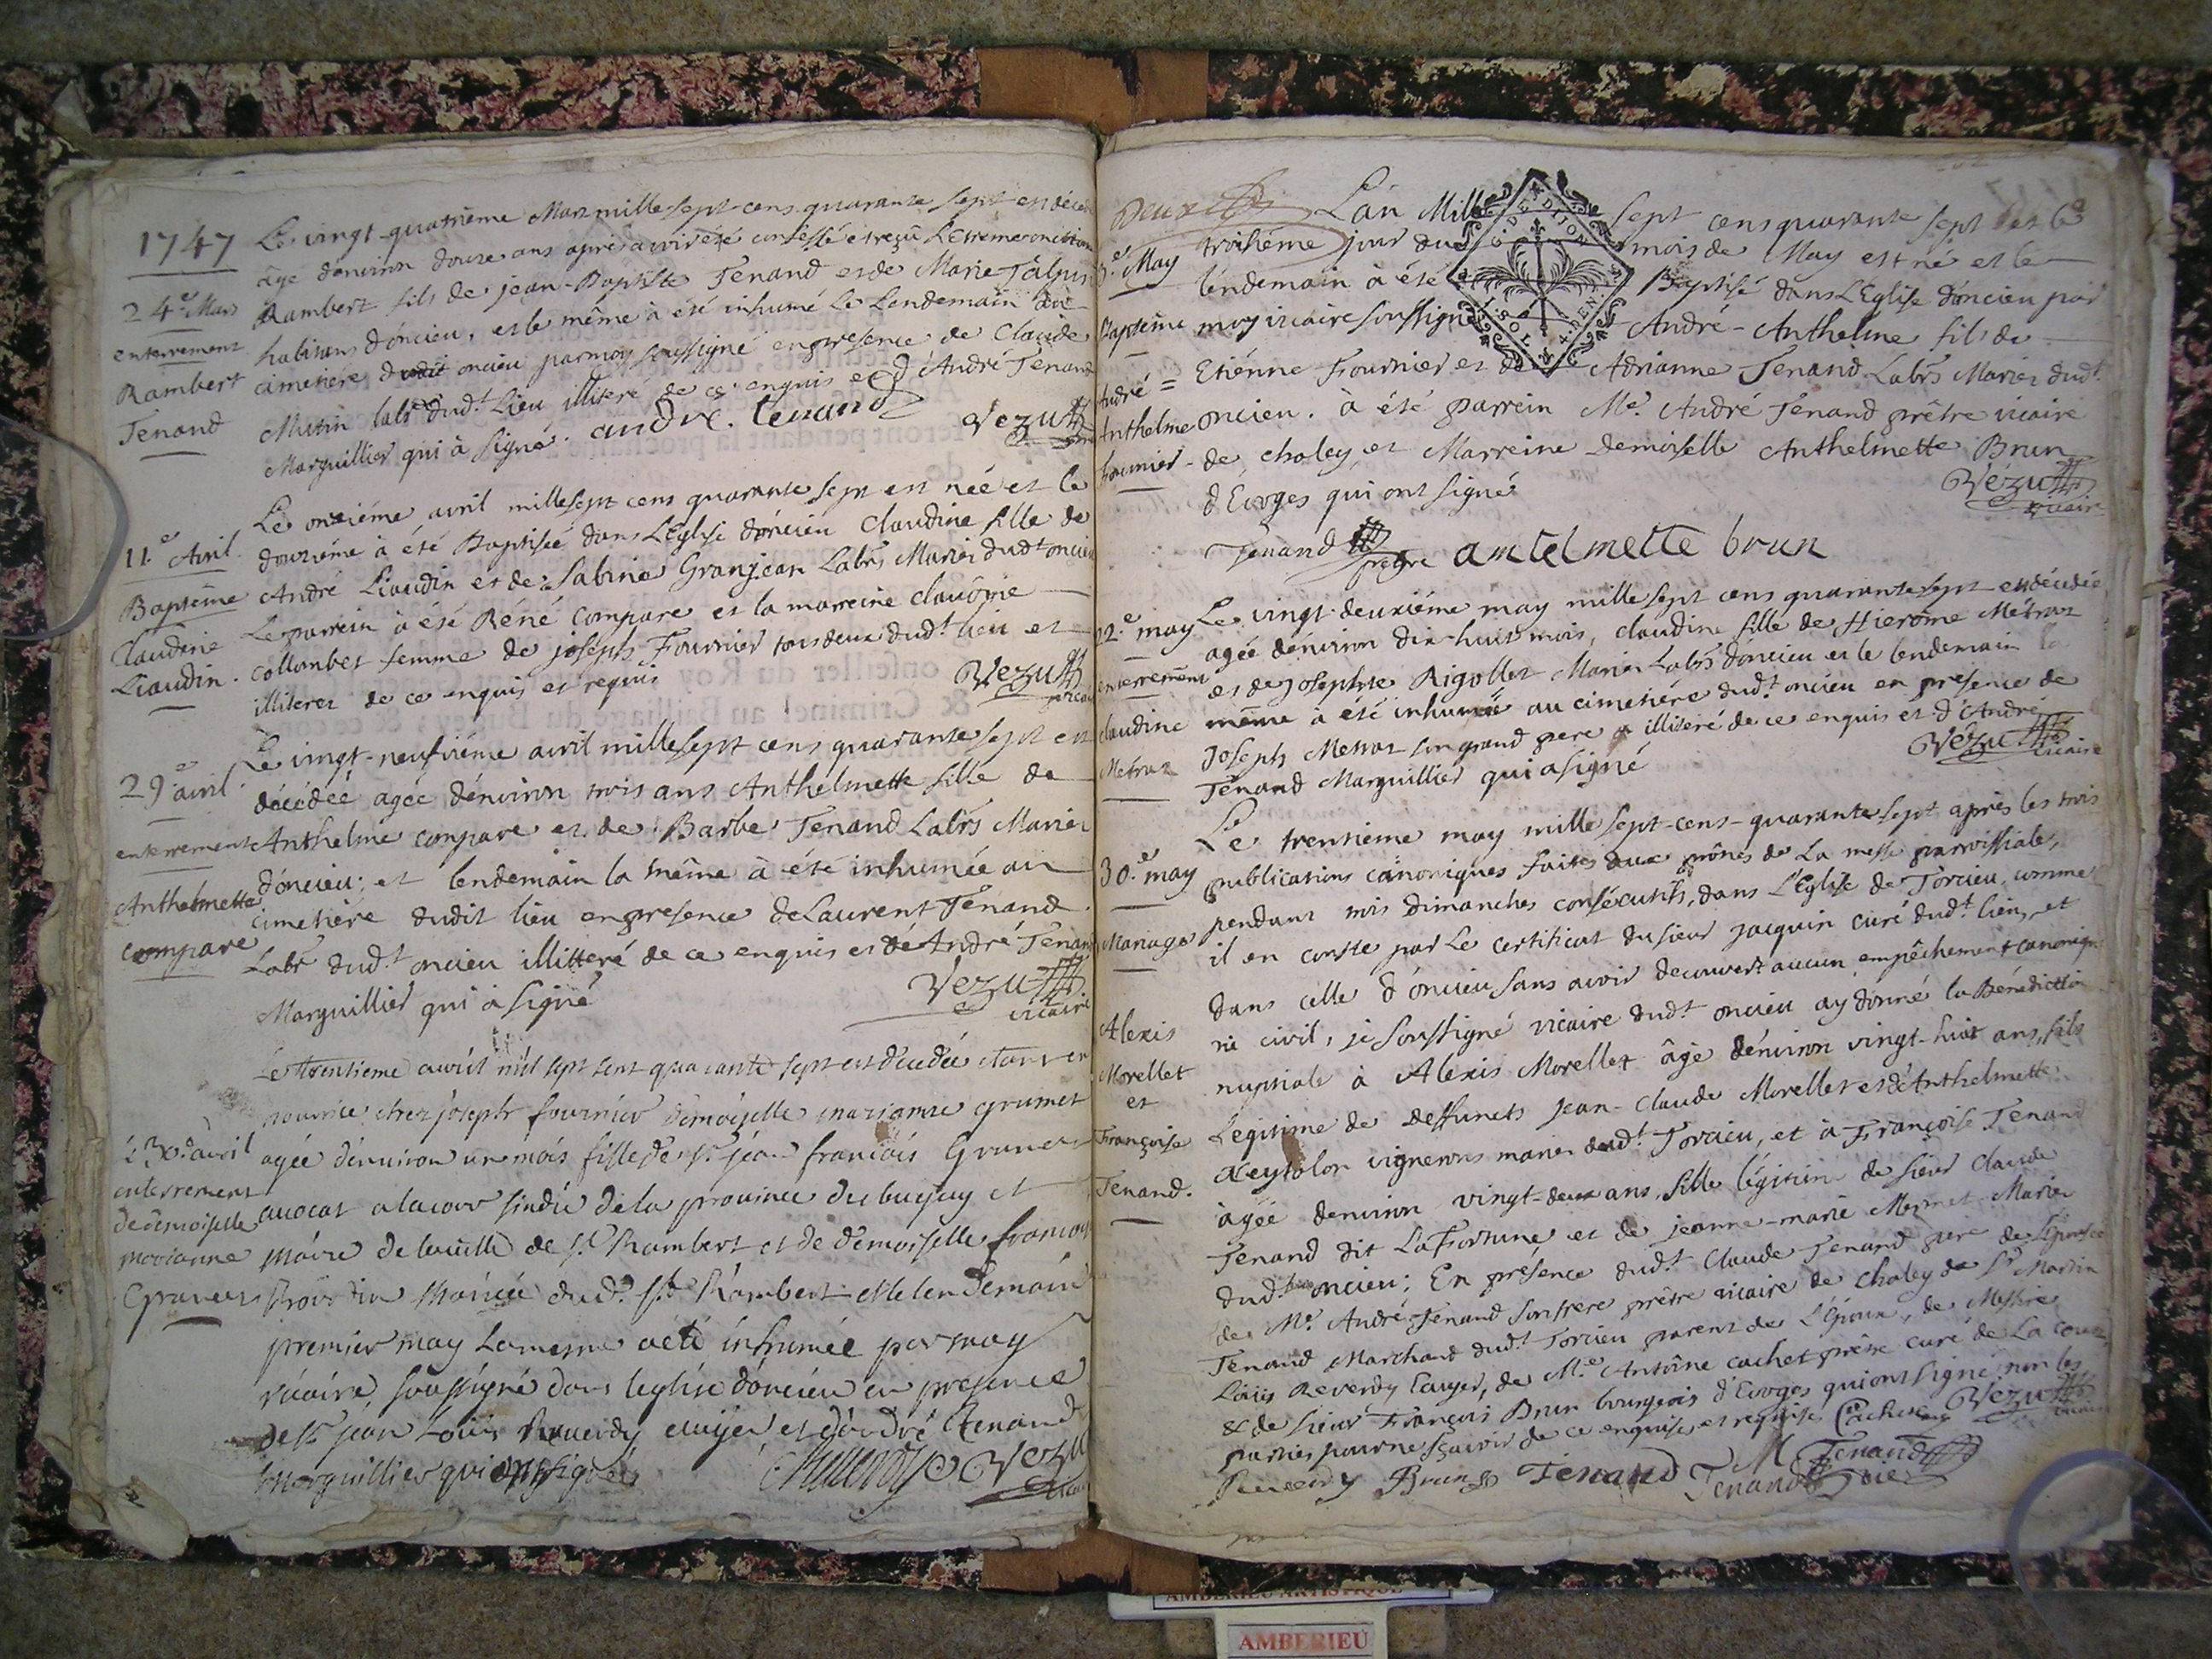 1747
24e Mars
enterrement
Rambert
Tenand
Le vingt-quatrième Mars mille sept-cens quarante sept est décédé
âgé d'environ douze ans après avoir été confessé et reçû L'Extreme onction
Rambert fils de jean-Baptiste Tenand et de Marie
habitans d'oncieu, et le même à été inhumé Le Lendemain au
cimetiére dudit oncieu par moy soussigné en presence de Claude
Mutin labr dud.t Lieu illiteré de ce enquis et d'André Tenand
Marguillier qui à Signé. andre. tenand Vezu
11.e Avril
Baptême
Claudine
Liaudin.
Le onziéme avril mille sept cens quarante sept est née et le
douziéme à été Baptisée dans L'Eglise d'oncieu Claudine fille de
André Liaudin et de Sabine Granjean Labrs Mariés dud.t oncieu
Le parrein à été Réné Compare et la marreine claudine
collombet femme de joseph Fournier tous deux dud.t lieu et
illiterez de ce enquis et requis Vezu
vicaire
29e avril
enterrement
Anthelmette
compare
Le vingt-neufviéme avril mille sept cens quarante sept est
décédée agée d'environ trois ans Anthelmette fille de
Anthelme compare et de Barbe Tenand Labrs Mariés
d'oncieu; et lendemain la même à été inhumée au
cimetiére dudit lieu en presence de Laurent Tenand
Labr dud.t oncieu illitteré de ce enquis et de André Tenand
Marguillier qui à signé Vezu
vicaire
30e d'avril
enterrement
de demoiselle
marianne
Grumet
Le trentieme avril mil sept sent quarante sept est decedée etant en
nourrice chez joseph fournier demoiselle marianne grumet
agée d'environ un mois fille de sr jean françois Grumet
avocat a la cour sindic de la province du bugey et
maire de la ville de st Rambert et de demoiselle françoise
mariée dud. st Rambert et le lendemain
premier may la mesme a eté inhumée par moy
vicaire soussigné dans leglise d'oncieu en presence
de sr jean Louis Reverdy ecuyer et d'andré Tenand
marguillier qui ont signé Reverdy Vezu
vicaire
Deux
3.e May
Baptême
André =
Anthelme
fournier
L'an Mille sept cens quarante sept et le
troisiéme jour du mois de May est né et le
lendemain à été Baptisé dans L'Eglise d'oncieu par
moy vicaire soussigné André-Anthelme fils de
Etiénne Fournier et de Adrianne Tenand Labrs Mariés dud.t
oncieu. à été parrein Me. André Tenand prêtre vicaire
de chaley et Marreine demoiselle Anthelmette Brun
d'Evoges qui ont signé Vézu
vicaire
Tenand prêtre antelmette brun
22.e may
enterrement
claudine
Métraz
Le vingt-deuxiéme may mille sept cens quarante sept est décédée
agée d'environ dix-huit mois, claudine fille de Hierome Métraz
et de Josephte Rigollet Mariés Labrs d'oncieu et le lendemain la
même à été inhumée au cimetiére dud.t oncieu en presence de
Joseph Metraz son grand pere illiteré de ce enquis et d'André
Tenand Marguillier qui a signé Vezu
vicaire
30.e may
Mariage
Alexis
Morellet
et
Françoise
Tenand.
Le trentieme may mille sept-cens-quarante sept après les trois
publications cánoniques faites aux prônes de La messe parroissiale,
pendant trois dimanches consécutifs, dans L'Eglise de Torcieu, comme
il en conste par Le certificat du sieur jacquin curé dud.t lieu, et
dans celle d'oncieu sans avoir decouvert aucun empêchement canonique
ni civil, je soussigné vicaire dud.t oncieu ay dónné la Bénédiction
nuptiale à Alexis Morellet âgé d'environ vingt-huit ans, fils
Légitime de deffuncts Jean-Claude Morellet et d'Anthelmette
vignerons mariés dud.t Torcieu, et à Françoise Tenand
agée d'environ vingt-deux ans, fille légitime de sieur Claude
Tenand dit LaFortune et de jeanne-marie Mermet Mariés
dud.t oncieu; En présence dud.t Claude Tenand pere de L'épouse
de Me. André Tenand son frere prêtre vicaire de chaley de Sr Martin
Tenand Marchand dud.t Torcieu parent de L'Epoux, de Messire
Loüis Reverdy Ecuyer, de Me. Antoine cachet prêtre curé de La
& de sieur François Brun bourgeois d'Evoges qui ont signé, non les
parties pour ne sçavoir de ce enquises et requises Cachet Vezu
Reverdy Brun Tenand M Tenand
Tenand vic.
D GEN DITION
SOLZ
AMBERIEU ARTISTIQUE
AMBERIEU